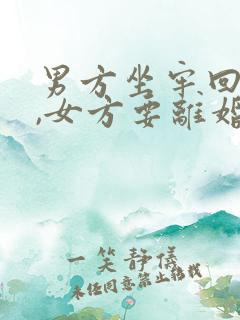 男方坐牢回
,女方要離婚
一笑靜儀
未经同意禁止转载